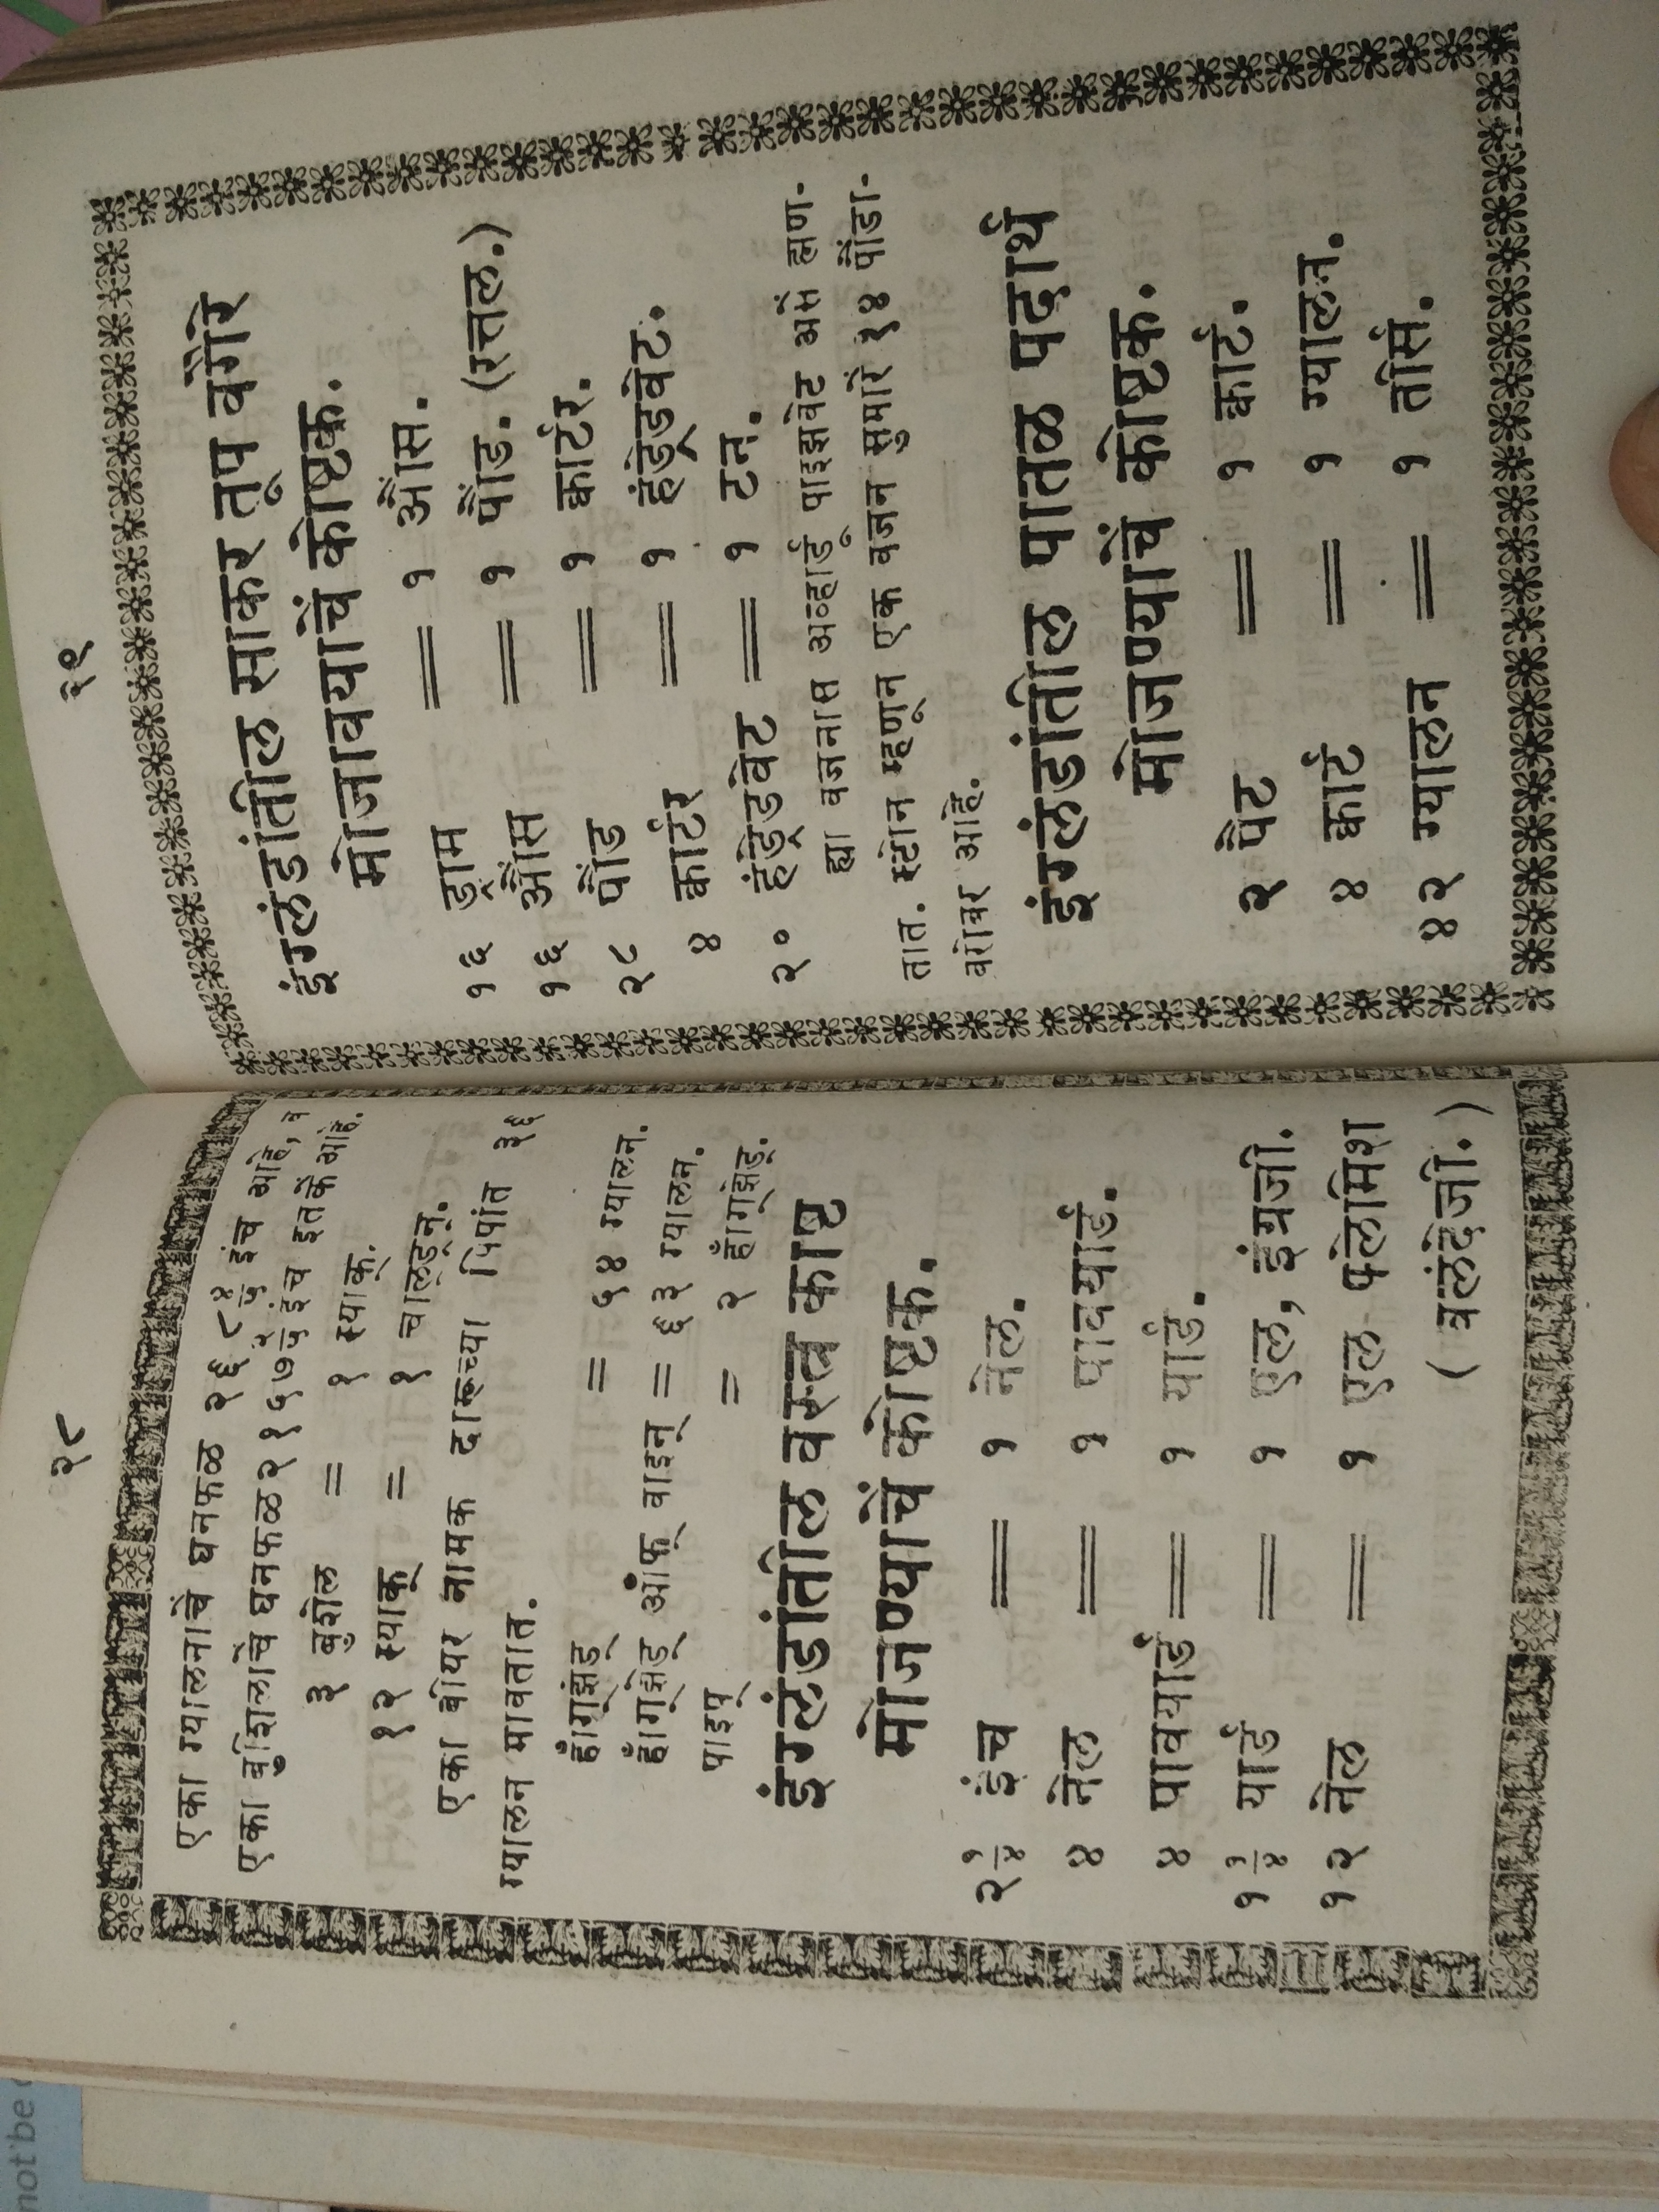 २८
एका ग्यालनाचे घनफळ २६८ ४/५ इंच आहे, व
एका बुशेलाचे घनफळ २१५७ २/५ इंच इतकें आहे.
३ बुशेल = १ स्याक्.
१२ स्याक् = १ चाल्ड्रन्.
एका बीयर नामक दारूच्या पिपांत ३६
ग्यालन मावतात.
हॉग्झेड् = ५४ ग्यालन.
हॉग्झेड् ऑफ् वाइन् = ६३ ग्यालन.
पाइप् = २ हॉग्झेड्.
इंग्लंडांतील वस्त्र काष्ठ
मोजण्याचें कोष्टक.
२ १/४ इंच = १ नेल.
४ नेल = १ पावयार्ड.
४ पावयार्ड = १ यार्ड.
१ ३/४ यार्ड = १ एल, इंग्रजी.
१२ नेल = १ एल फ्लेमिश
( वलंदेजी. )
२९
इंग्लंडांतील साकर तूप वगैरे
मोजावयाचें कोष्टक.
१६ ड्राम = १ औंस.
१६ औंस = १ पौंड. (रत्तल.)
२८ पौंड = १ कार्टर.
४ कार्टर = १ हंड्रेडवेट.
२० हंड्रेडवेट = १ टन.
ह्या वजनास अव्हार्डु पाइझवेट असें ह्मण-
तात. स्टोन म्हणून एक वजन सुमारें १४ पौंडा-
बरोबर आहे.
इंग्लंडांतील पातळ पदार्थ
मोजण्याचें कोष्टक.
२ पैंट = १ कार्ट.
४ कार्ट = १ ग्यालन.
४२ ग्यालन = १ तीर्स.
not be